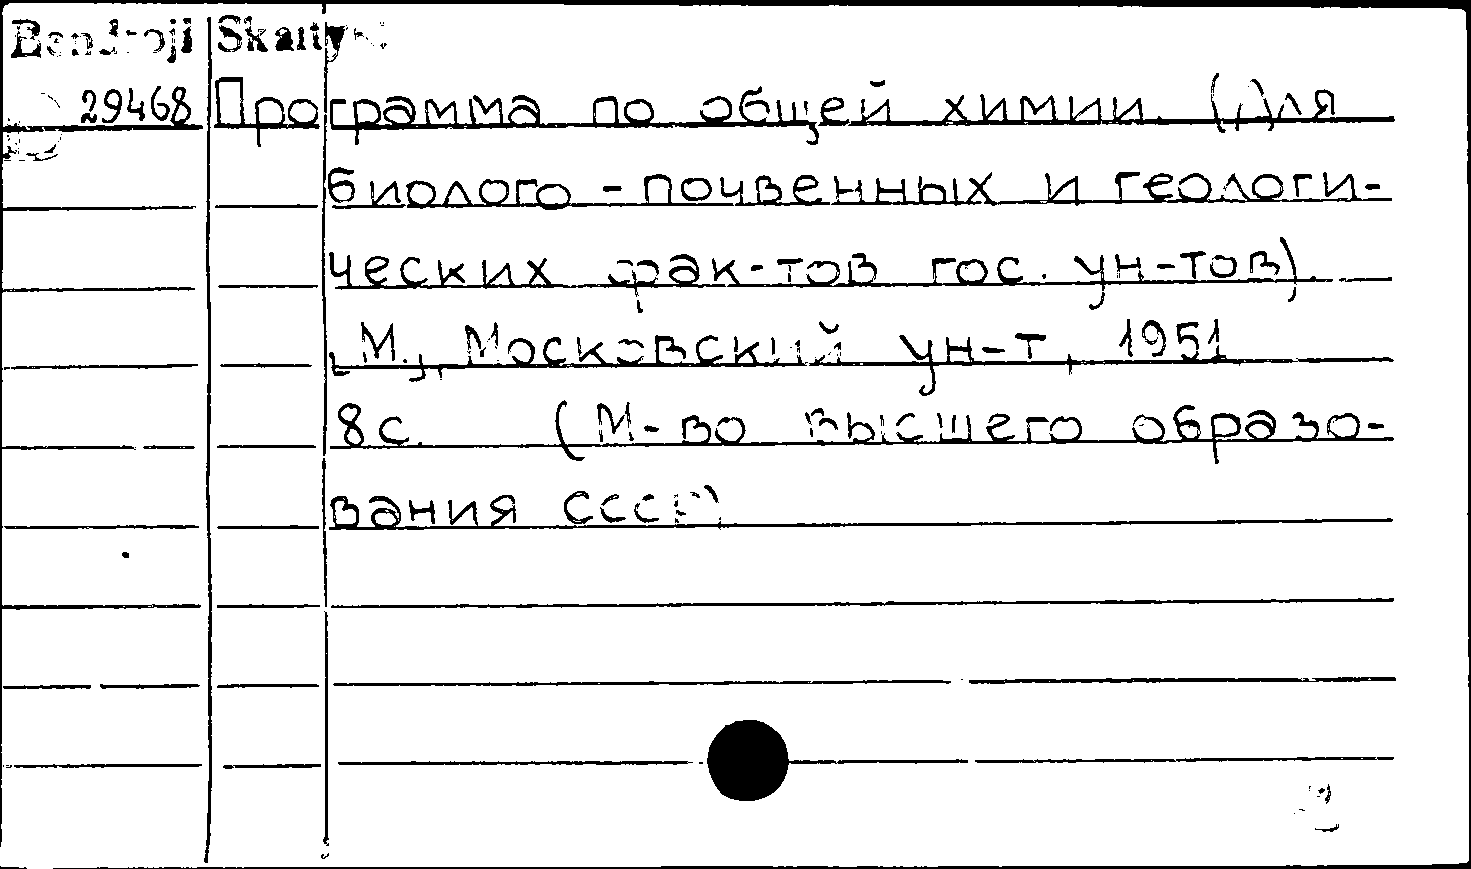 Bendroji Skaityk
29468 Программа по общей химии. (Для
биолого-почвенных и геологи-
ческих фак-тов гос. ун-тов).
[М.], Московский ун-т, 1951
8с. (М-во высшего образо-
вания СССР)